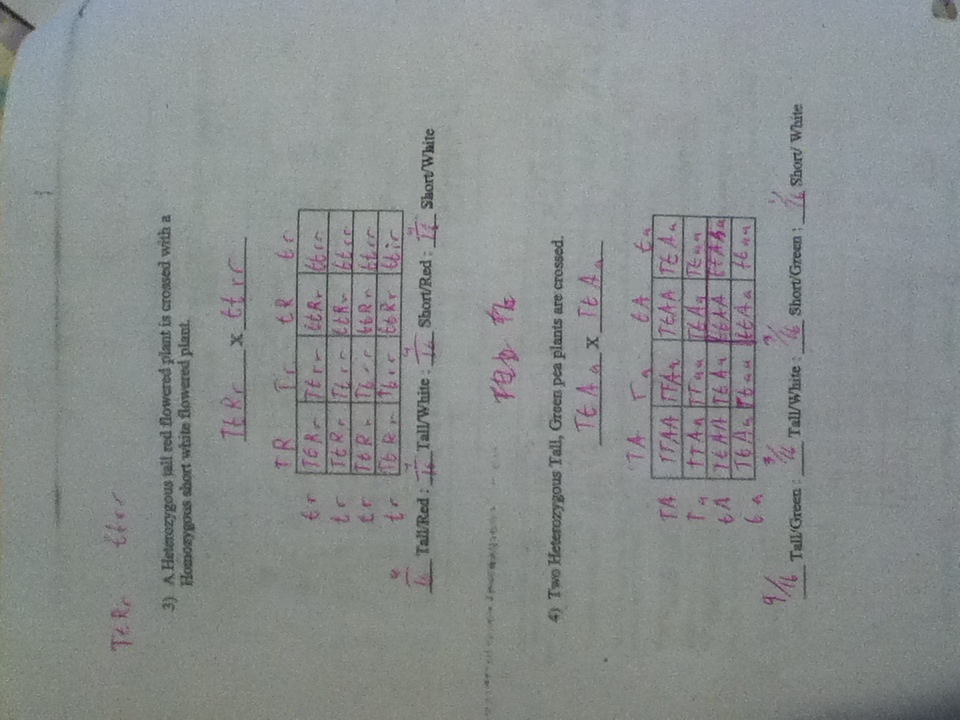 TtRr ttrr
3) A Heterozygous tall red flowered plant is crossed with a
Homozygous short white flowered plant.
TtRr x ttrr
TR Tr tR tr
tr TtRr Ttrr ttRr ttrr
tr TtRr Ttrr ttRr ttrr
tr TtRr Ttrr ttRr ttrr
tr TtRr Ttrr ttRr ttrr
4/16 Tall/Red : 4/16 Tall/White : 4/16 Short/Red : 4/16 Short/White
4) Two Heterozygous Tall, Green pea plants are crossed.
TtAa x TtAa
TA Ta tA ta
TA TTAA TTAa TtAA TtAa
Ta TTAa TTaa TtAa Ttaa
tA TtAA TtAa ttAA
ta TtAa Ttaa ttAa ttaa
9/16 Tall/Green : 3/16 Tall/White : 3/16 Short/Green : 1/16 Short/ White